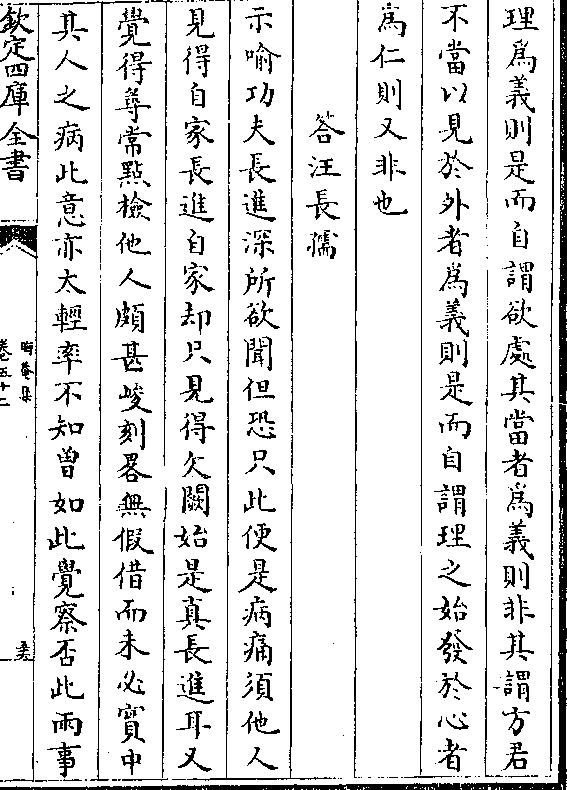 理爲義則是而自謂欲處其當者爲義則非其謂方君
不當以見於外者爲義則是而自謂理之始發於心者
爲仁則又非也
答汪長孺
示喻功夫長進深所欲聞但恐只此便是病痛須他人
見得自家長進自家却只見得欠闕始是真長進耳又
覺得尋常點檢他人頗甚峻刻畧無假借而未必實中
其人之病此意亦太輕率不知曽如此覺察否此兩事
欽定四庫全書
晦菴集
卷五十二